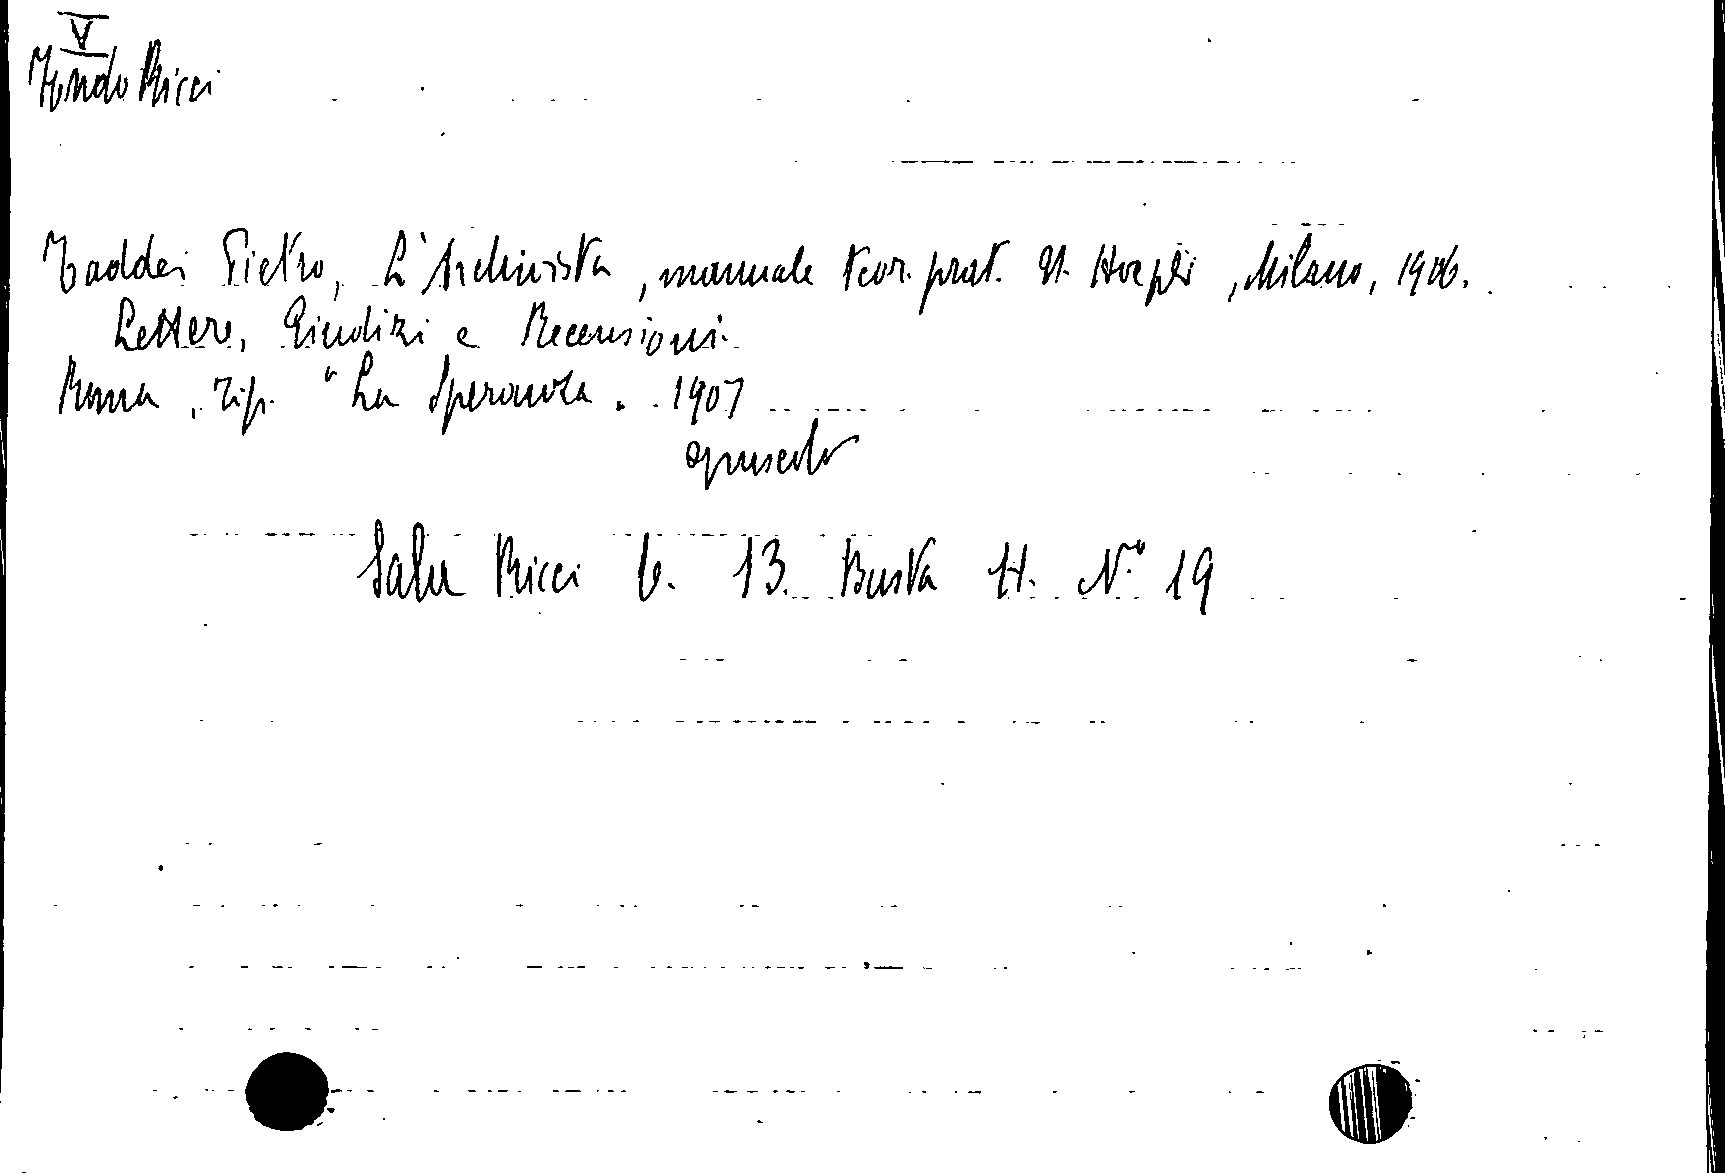 V
Fondo Ricci
Taddei Pietro, L'Archivista, manuale teor. prat. U. Hoepli, Milano, 1906.
Lettere, Giudizi e Recensioni.
Roma, Tip. "La Speranza. 1907
opuscolo
Sala Ricci 6. 13. Busta H. N.° 19